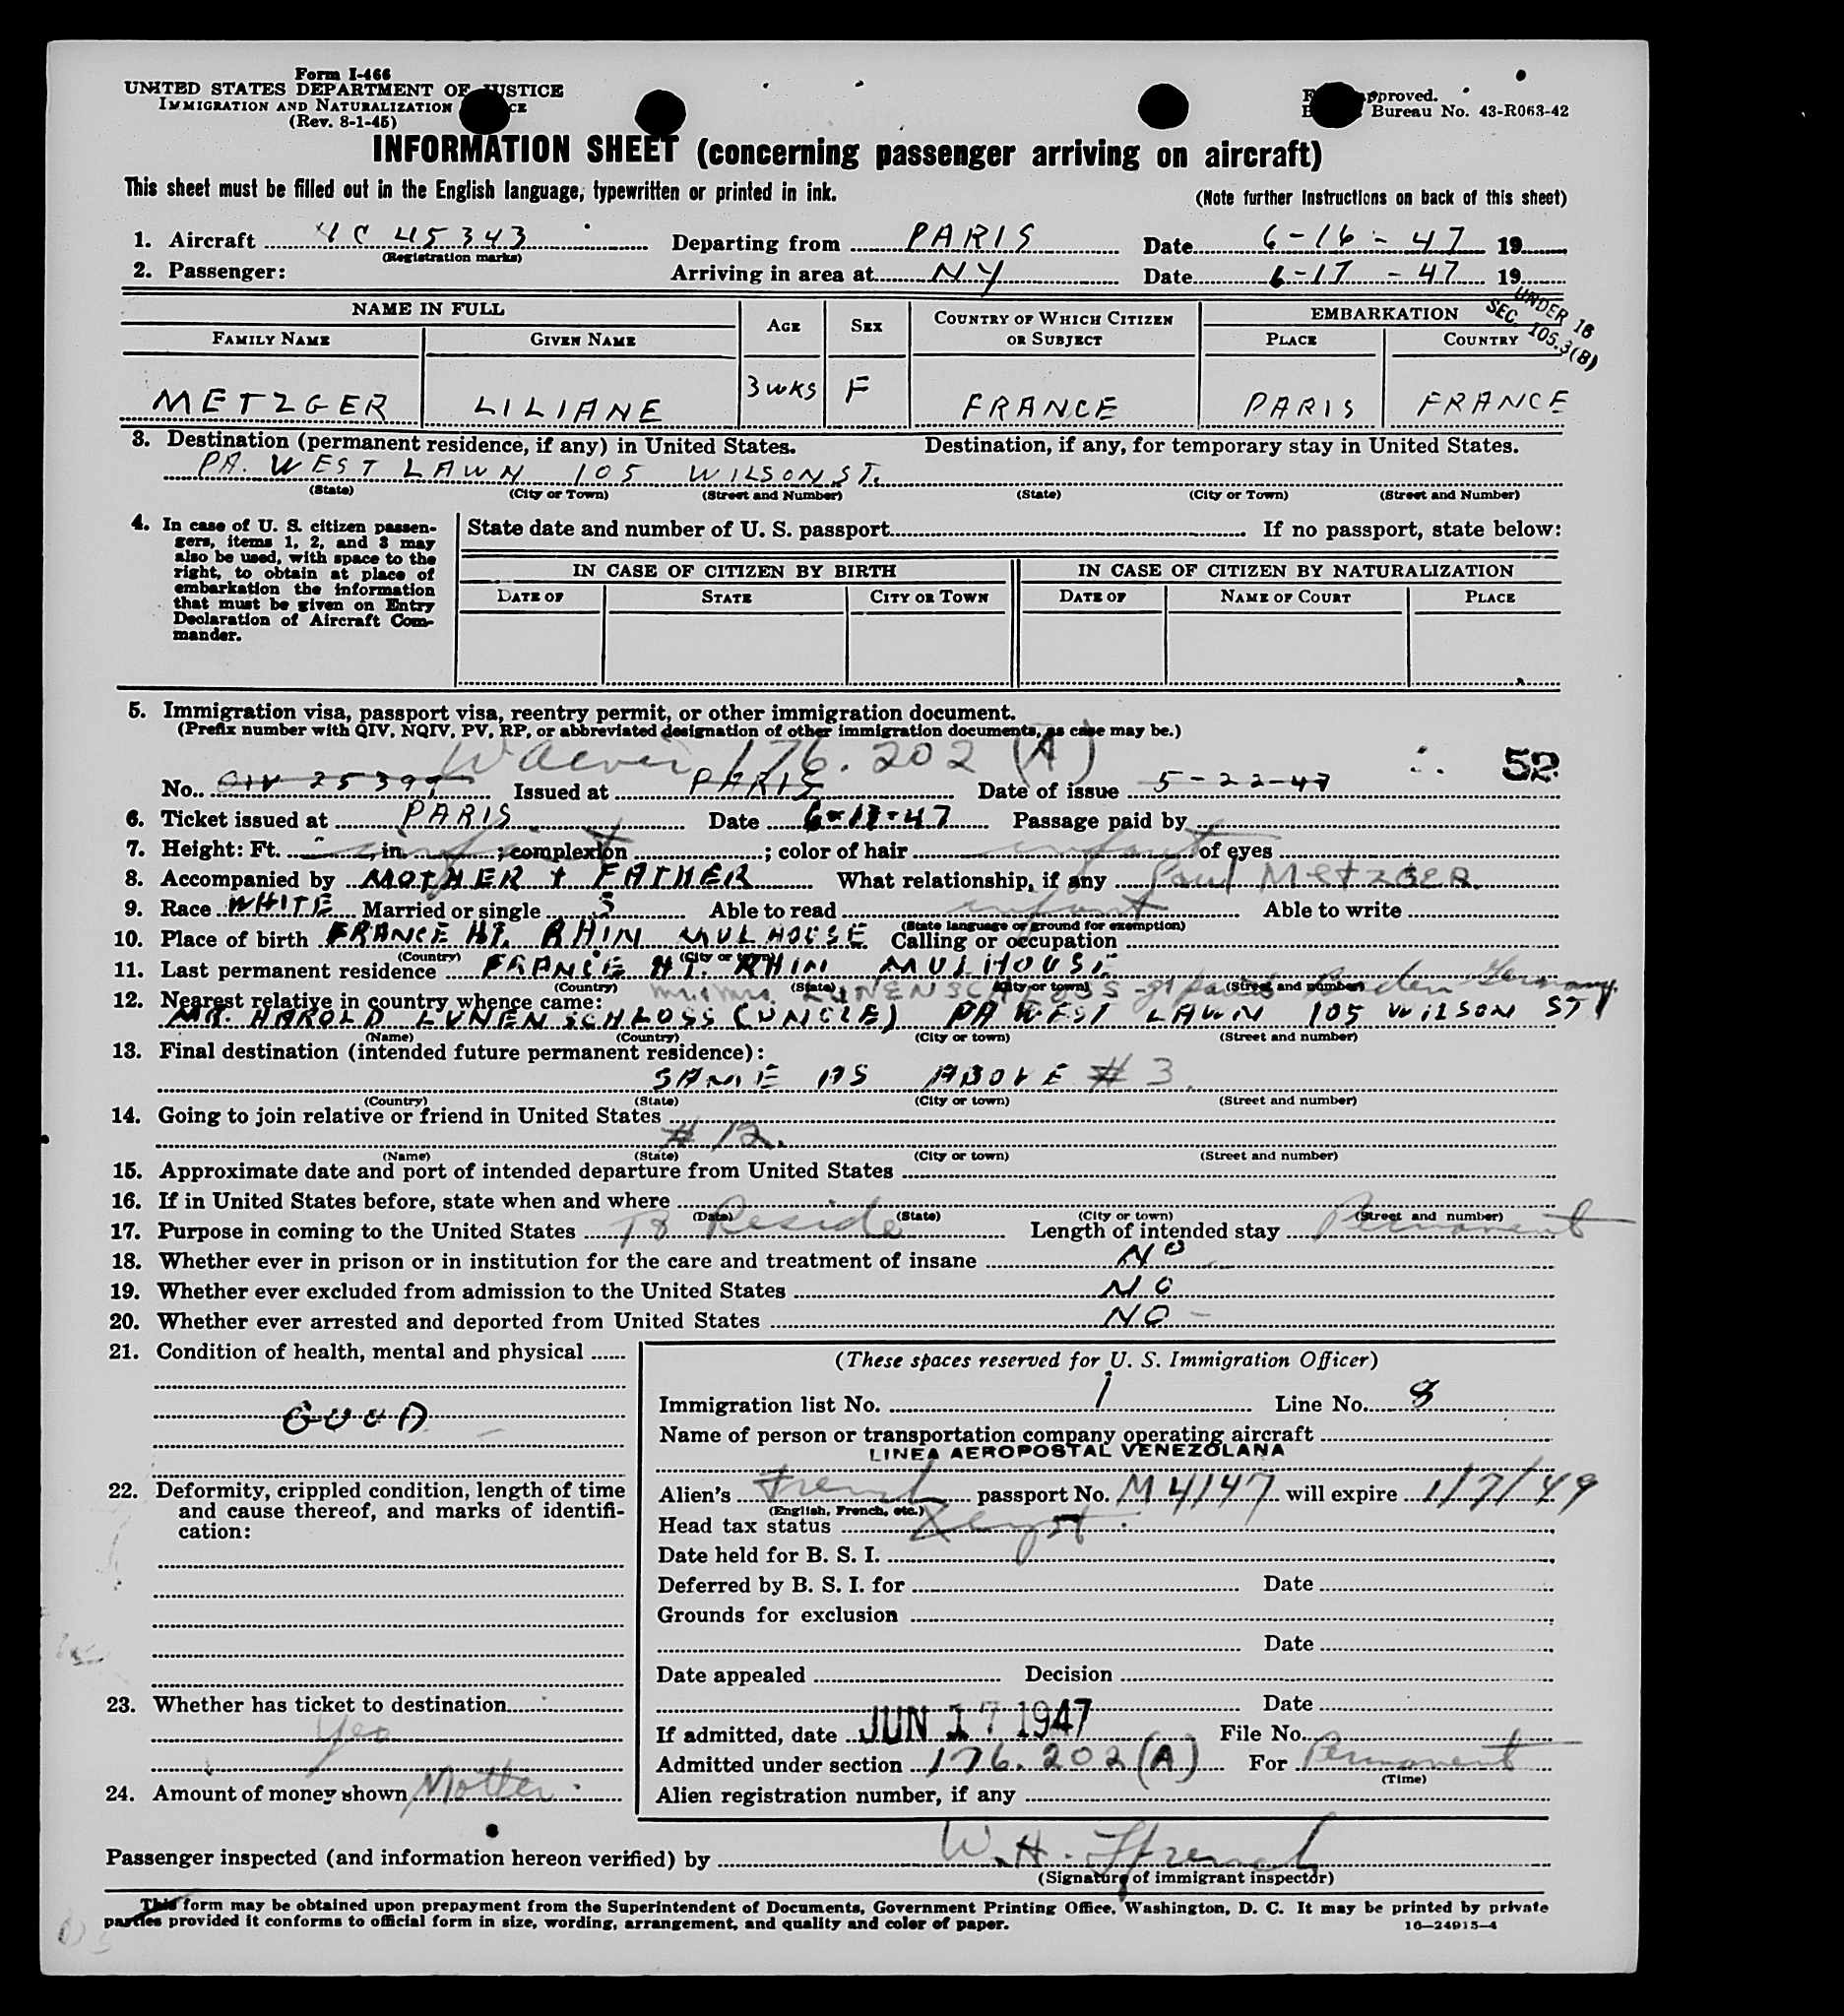 Form I-466
UNITED STATES DEPARTMENT OF JUSTICE
IMMIGRATION AND NATURALIZATION
(Rev. 8-1-45)
Approved.
Bureau No. 43-R063-42
INFORMATION SHEET (concerning passenger arriving on aircraft)
This sheet must be filled out in the English language, typewritten or printed in ink. (Note further instructions on back of this sheet)
1. Aircraft YC 45343 Departing from PARIS Date 6-16-47 19
(Registration marks)
2. Passenger: Arriving in area at NY Date 6-17-47 19
UNDER 16
SEC. 105.3(B)
NAME IN FULL AGE SEX COUNTRY OF WHICH CITIZEN OR SUBJECT EMBARKATION
FAMILY NAME GIVEN NAME PLACE COUNTRY
METZGER LILIANE 3 WKS F FRANCE PARIS FRANCE
3. Destination (permanent residence, if any) in United States. Destination, if any, for temporary stay in United States.
PA. WEST LAWN 105 WILSON ST.
(State) (City or Town) (Street and Number) (State) (City or Town) (Street and Number)
4. In case of U. S. citizen passen-
gers, items 1, 2, and 3 may
also be used, with space to the
right, to obtain at place of
embarkation the information
that must be given on Entry
Declaration of Aircraft Com-
mander.
State date and number of U. S. passport If no passport, state below:
IN CASE OF CITIZEN BY BIRTH IN CASE OF CITIZEN BY NATURALIZATION
DATE OF STATE CITY OR TOWN DATE OF NAME OF COURT PLACE
5. Immigration visa, passport visa, reentry permit, or other immigration document.
(Prefix number with QIV, NQIV, PV, RP, or abbreviated designation of other immigration documents, as case may be.)
176.202 (A)
52
No. QIV 25397 Issued at PARIS Date of issue 5-22-47
6. Ticket issued at PARIS Date 6-17-47 Passage paid by
7. Height: Ft. , in. infant ; complexion ; color of hair infant of eyes
8. Accompanied by MOTHER + FATHER What relationship, if any Paul METZGER
9. Race WHITE Married or single S Able to read infant Able to write
(State language or ground for exemption)
10. Place of birth FRANCE HT. RHIN MULHOUSE Calling or occupation
(Country) (City or town)
11. Last permanent residence FRANCE HT. RHIN MULHOUSE
(Country) (State) (City or town) (Street and number)
12. Nearest relative in country whence came: Mr. & Mrs. LUNENSCHLOSS Baden Germany
MR. HAROLD LUNENSCHLOSS (UNCLE) PA WEST LAWN 105 WILSON ST
(Name) (Country) (City or town) (Street and number)
13. Final destination (intended future permanent residence):
SAME AS ABOVE # 3
(Country) (State) (City or town) (Street and number)
14. Going to join relative or friend in United States
# 12.
(Name) (State) (City or town) (Street and number)
15. Approximate date and port of intended departure from United States
16. If in United States before, state when and where
(Date) (State) (City or town) (Street and number)
17. Purpose in coming to the United States To Reside Length of intended stay Permanent
18. Whether ever in prison or in institution for the care and treatment of insane NO
19. Whether ever excluded from admission to the United States NO
20. Whether ever arrested and deported from United States NO -
21. Condition of health, mental and physical
GOOD
22. Deformity, crippled condition, length of time
and cause thereof, and marks of identifi-
cation:
23. Whether has ticket to destination
Yes
24. Amount of money shown Mother
(These spaces reserved for U. S. Immigration Officer)
Immigration list No. 1 Line No. 8
Name of person or transportation company operating aircraft
LINEA AEROPOSTAL VENEZOLANA
Alien's French passport No. M 4147 will expire 1/7/49
(English, French, etc.)
Head tax status Exempt
Date held for B. S. I.
Deferred by B. S. I. for Date
Grounds for exclusion
Date
Date appealed Decision
Date
If admitted, date JUN 17 1947 File No.
Admitted under section 176.202 (A) For Permanent
(Time)
Alien registration number, if any
Passenger inspected (and information hereon verified) by W. H. Ffrench
(Signature of immigrant inspector)
This form may be obtained upon prepayment from the Superintendent of Documents, Government Printing Office, Washington, D. C. It may be printed by private
parties provided it conforms to official form in size, wording, arrangement, and quality and color of paper. 16—24915-4